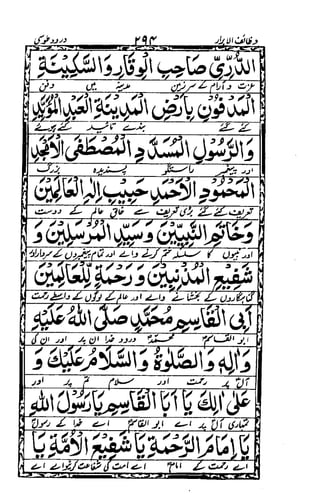 وظائف الابرار ۲۹۴ درود طوسی
الدُّرِّيِّ صَاحِبِ الْوَقَارِ وَالسَّكِيْنَةِ
عزت و آرام کے سرزمین مدینہ میں دفن
الْمَدْفُوْنِ بِاَرْضِ الْمَدِيْنَةِ الْعَبْدِ الْمُؤَيَّدِ
کئے گئے بندے تائید کئے ہوئے
وَالرَّسُوْلِ الْمُسَدَّدِ الْمُصْطَفَى الْاَمْجَدِ
اور پیغمبر راستگو پسندیدہ بزرگ
الْمَحْمُوْدِ الْاَحْمَدِ حَبِيْبِ اِلٰهِ الْعَالَمِيْنَ
تعریف کئے گئے بڑی تعریف کے خالق عالم کے دوست
وَخَاتَمِ النَّبِيِّيْنَ وَسَيِّدِ الْمُرْسَلِيْنَ وَ
اور نبیوں کا سلسلہ ختم کرنے والے اور تمام پیغمبروں کے سردار اور
شَفِيْعِ الْمُذْنِبِيْنَ وَرَحْمَةٍ لِّلْعَالَمِيْنَ
گناہگاروں کے بخشانے والے اور عالم کے لوگوں کے واسطے رحمت
اَبِى الْقَاسِمِ مُحَمَّدٍ صَلَّى اللهُ عَلَيْهِ
ابو القاسم محمدؐ درود خدا ان پر اور ان کی
وَاٰلِهٖ وَالصَّلٰوةُ وَالسَّلَامُ عَلَيْكَ وَ
آل پر رحمت اور سلام تم پر اور
عَلٰى اٰلِكَ يَا اَبَا الْقَاسِمِ يَا رَسُوْلَ اللهِ
تمہاری آل پر اے ابو القاسم اے خدا کے رسول
يَا اِمَامَ الرَّحْمَةِ يَا شَفِيْعَ الْاُمَّةِ يَا
اے رحمت کے امام اے امت کی شفاعت کرنیوالے اے